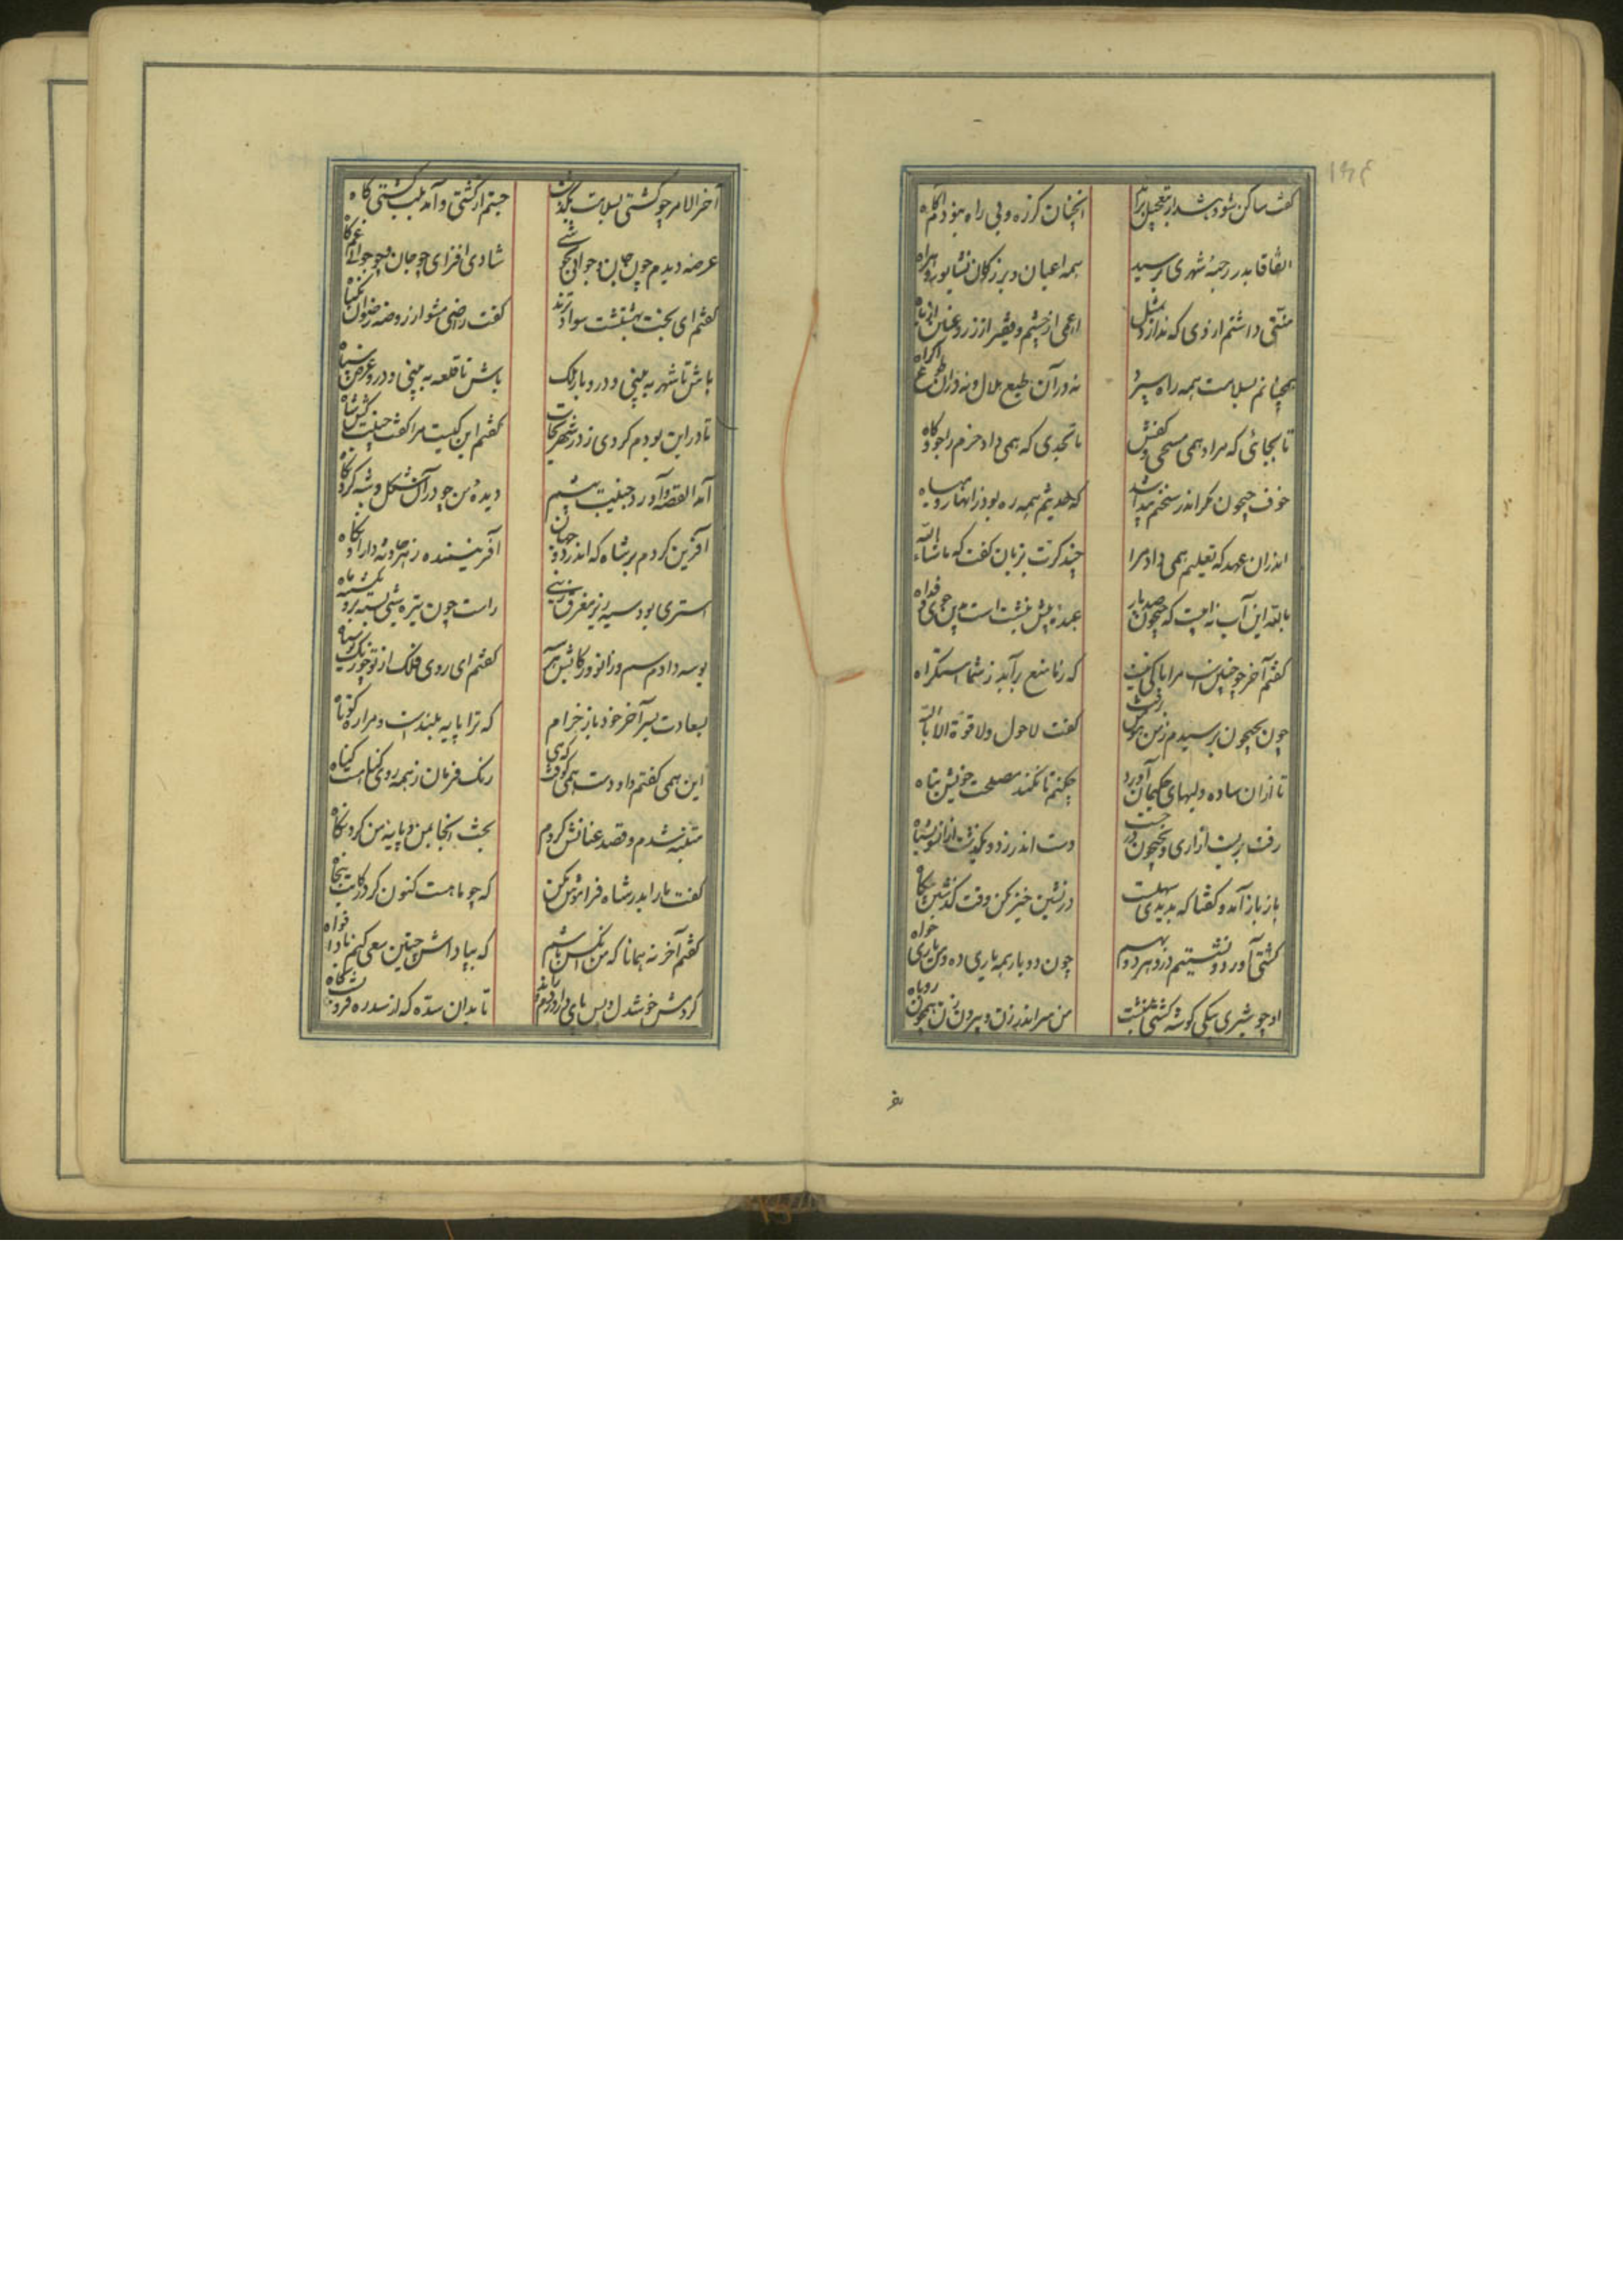 ۱۹۴
گفت ساکن شو و شد از تعجیل براه آنچنان کز ره و بی راه نبودم آگاه
اتفاقا بدر رحبهٔ شهری برسید همه اعیان و بزرگان نشابور براه
منتی داشتم از وی که ندارد بمثل اعمی از چشم و فقیر از زر و عنین از باه
همچنانم بسلامت همه راه می برد نه در آن طبع ملال و نه در آن طوع اکراه
تا بجائی که مرا داد همی صبحی کفش با تجدی که همی داد خرم راجو و کاه
خوف جیحون مگر اندر سخنم پیدا شد که حدیثم همه ره بود ز انها و میاه
اندران عهد که تعلیم همی داد مرا چند کرت بزبان گفت که ماشاء الله
بالله این آب نه آبیست که جیحون صد بار عبده بیش نبشتست بدین جوی فداه
گفتم آخر چو چنین است مرا باکی نیست که رنا منع برآید ز شما استکراه
چون بجیحون برسیدم ز من هوش برفت گفت لاحول ولا قوة الا بالله
تا از آن ساده دلیهای حکیمان آورد چکنم تا نکند مصلحت خویش تباه
رفت بربست ازاری و بجیحون در جست دست اندر زد و بگذشت از آنسو بشناه
باز باز آمد و گفتا که بدیدی سهلست درنشین خیز مکن وقت گذشتن بیگاه
کشتی آورد و نشستیم در و هر دو بهم چون دو یار همه یاری ده و بس یاری خواه
او چو شیری بیکی گوشه کشتی بنشست من سر اندر زن و بیرون زن همچون روباه
آخر الامر چو کشتی بسلامت بگذشت جستم از کشتی و آمد بلب کشتی گاه
عرصه دیدم چون جان و جوانی بخوشی شادی افزای چو جان و چو جوانی غم کاه
گفتم ای بخت بهشتست سواد ترمذ گفت راضی مشو از روضه رضوان بگیاه
باش تا شهر به بینی و در و بارنگ باش تا قلعه به بینی و در و عرض سپاه
تا در این بودم گردی ز در شهر بخاست گفتم این کیست مرا گفت جنیبت کش شاه
آمد القصه و آورد جنیبت پیشم دیده من چو در آن شکل و شبه کرد نگاه
آفرین کردم بر شاه که اندر دو جهان آفریننده ز هر حادثه داراد نگاه
استری بود سیه زیر مغرق زینی راست چون تیره شبی بسته برو یکشبه ماه
بوسه دادم سم و زانو و رکابش بهم گفتم ای روی فلک از تو چو زنگت سیاه
بسعادت بسر آخر خود باز خرام که ترا پایه بلندست و مرا ره کوتاه
این همی گفتم و او دست همی کوفت که هی رنگ فرمان ز همه روی گناهست گناه
متنبه شدم و قصد عنانش کردم بخت انجا بمن و پایه من کرد نگاه
گفت یارا بدر شاه فراموش مکن که چو ماهت کنون گرد رکابت پنجاه
گفتم آخر نه همانا که من آنکس باشم که بپاداش چنین سعی کنم باد افراه
کردمش خوشدل و پس پای درآوردم تا بدان سده که از سدره فرونست بگاه